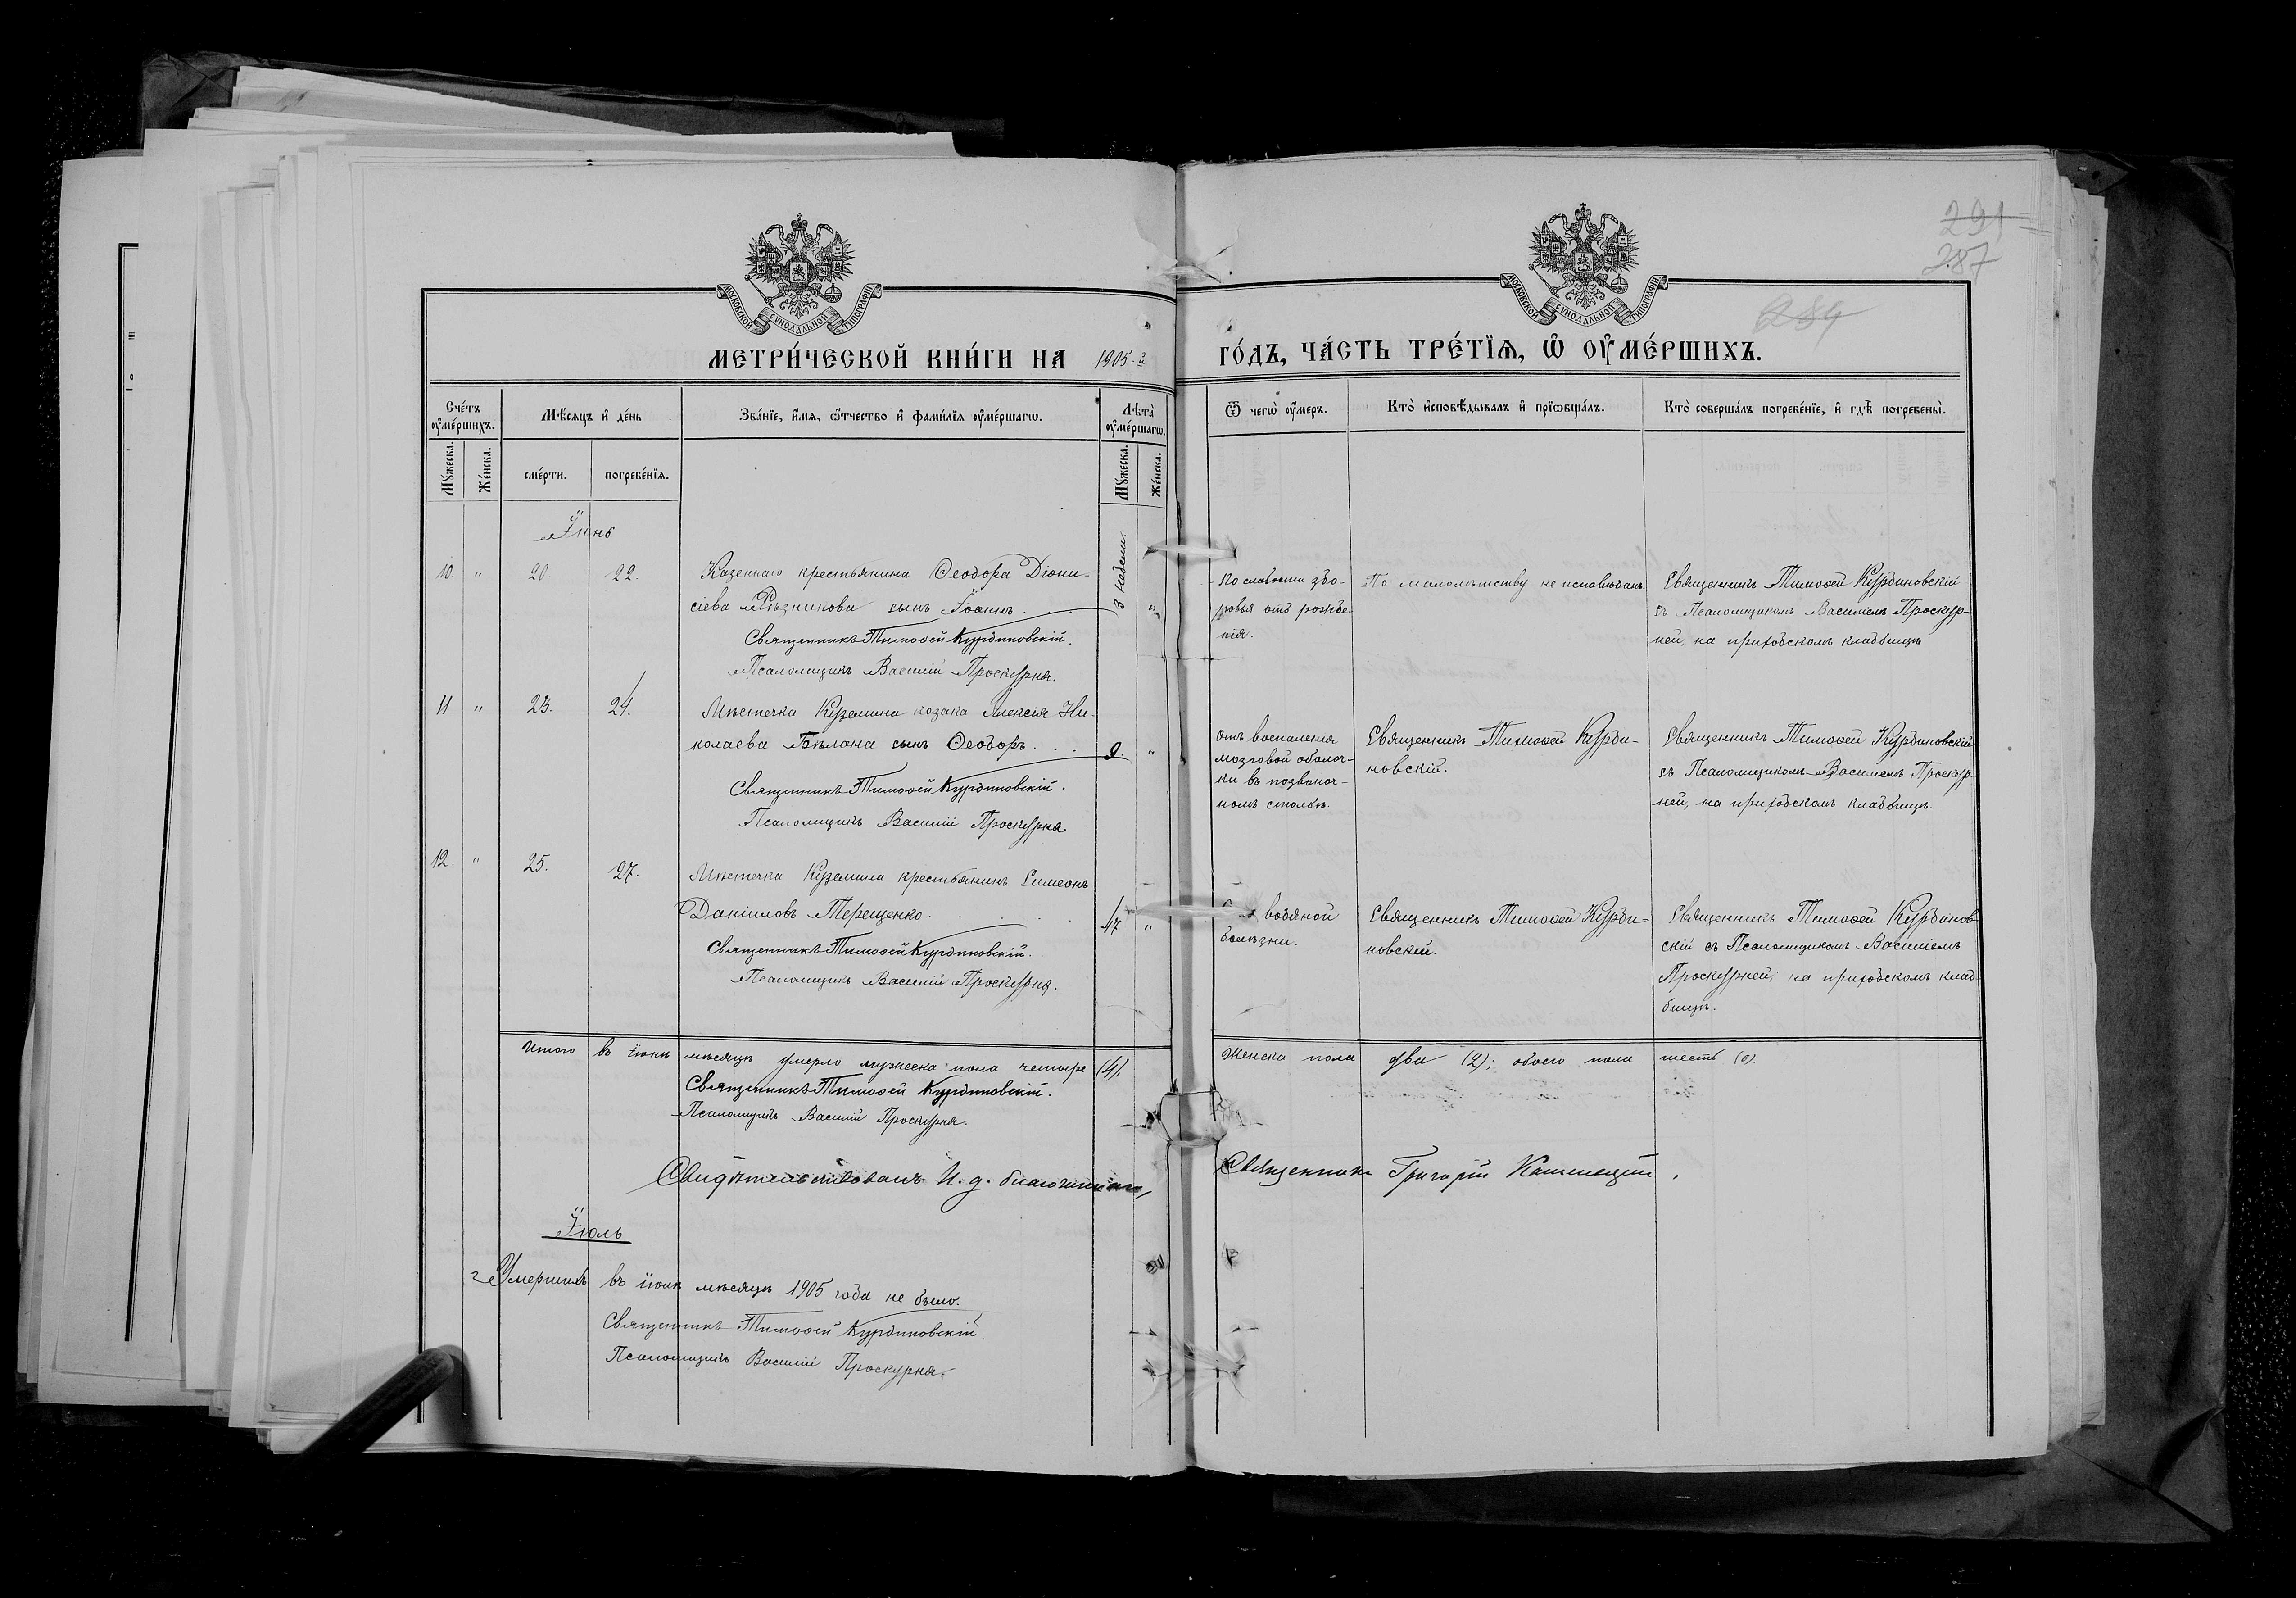 291
287
284
МОСКОВСКОЙ СѴНОДАЛЬНОЙ ТИПОГРАФІИ
МОСКОВСКОЙ СѴНОДАЛЬНОЙ ТИПОГРАФІИ
МЕТРИ́ЧЕСКОЙ КНИ́ГИ НА 1905-й ГО́ДЪ, ЧА́СТЬ ТРЕ́ТІѦ, Ѡ҆ ОУ҆МЕ́РШИХЪ.
Сче́тъ оу҆ме́ршихъ.
Мѣ́сяцъ и҆ де́нь
Зва́нїе, и҆́мя, ѻ҆́тчество и҆ фами́лїя оу҆ме́ршагѡ.
Лѣта̀ оу҆ме́ршагѡ.
Ѿ чегѡ̀ оу҆́меръ.
Кто̀ и҆сповѣ́дывалъ и҆ прїѡбща́лъ.
Кто̀ соверша́лъ погребе́нїе, и҆ гдѣ̀ погребены̀.
Мꙋ́жеска.
Же́нска.
сме́рти.
погребе́нїя.
Мꙋ́жеска.
Же́нска.
Іюнь
10. " 20. 22.
Казеннаго крестьянина Ѳеодора Діони-
сіева Рѣзникова сынъ Іоаннъ.
3 недели. "
Священникъ Тимоѳей Курдиновскій.
Псаломщикъ Василій Проскурня.
По слабости здо-
ровья отъ рожде-
нія.
По малолѣтству не исповѣданъ
Священникъ Тимоѳей Курдиновскій
съ Псаломщикомъ Василіемъ Проскур-
ней, на приходскомъ кладбищѣ
11 " 23. 24.
Мѣстечка Куземина козака Алексія Ни-
колаева Бѣлана сынъ Ѳеодоръ . . . 9. "
Священникъ Тимоѳей Курдиновскій.
Псаломщикъ Василій Проскурня.
Отъ воспаленія
мозговой оболоч-
ки въ позвоноч-
номъ столбѣ.
Священникъ Тимоѳей Курди-
новскій.
Священникъ Тимоѳей Курдиновскій
съ Псаломщикомъ Василіемъ Проскур-
ней, на приходскомъ кладбищѣ.
12. " 25. 27.
Мѣстечка Куземина крестьянинъ Симеонъ
Даніиловъ Терещенко. 47 "
Священникъ Тимоѳей Курдиновскій.
Псаломщикъ Василій Проскурня.
водяной
болѣзни.
Священникъ Тимоѳей Курди-
новскій.
Священникъ Тимоѳей Курдинов-
скій съ Псаломщикомъ Василіемъ
Проскурней, на приходскомъ клад-
бищѣ.
Итого въ іюнѣ мѣсяцѣ умерло мужеска пола четыре (4); Женска пола два (2); обоего пола шесть (6).
Священникъ Тимоѳей Курдиновскій.
Псаломщикъ Василій Проскурня.
Свидѣтельствовалъ И. д. благочиннаго, Священникъ Григорій
Іюль
Умершихъ въ іюлѣ мѣсяцѣ 1905 года не было.
Священникъ Тимоѳей Курдиновскій.
Псаломщикъ Василій Проскурня.